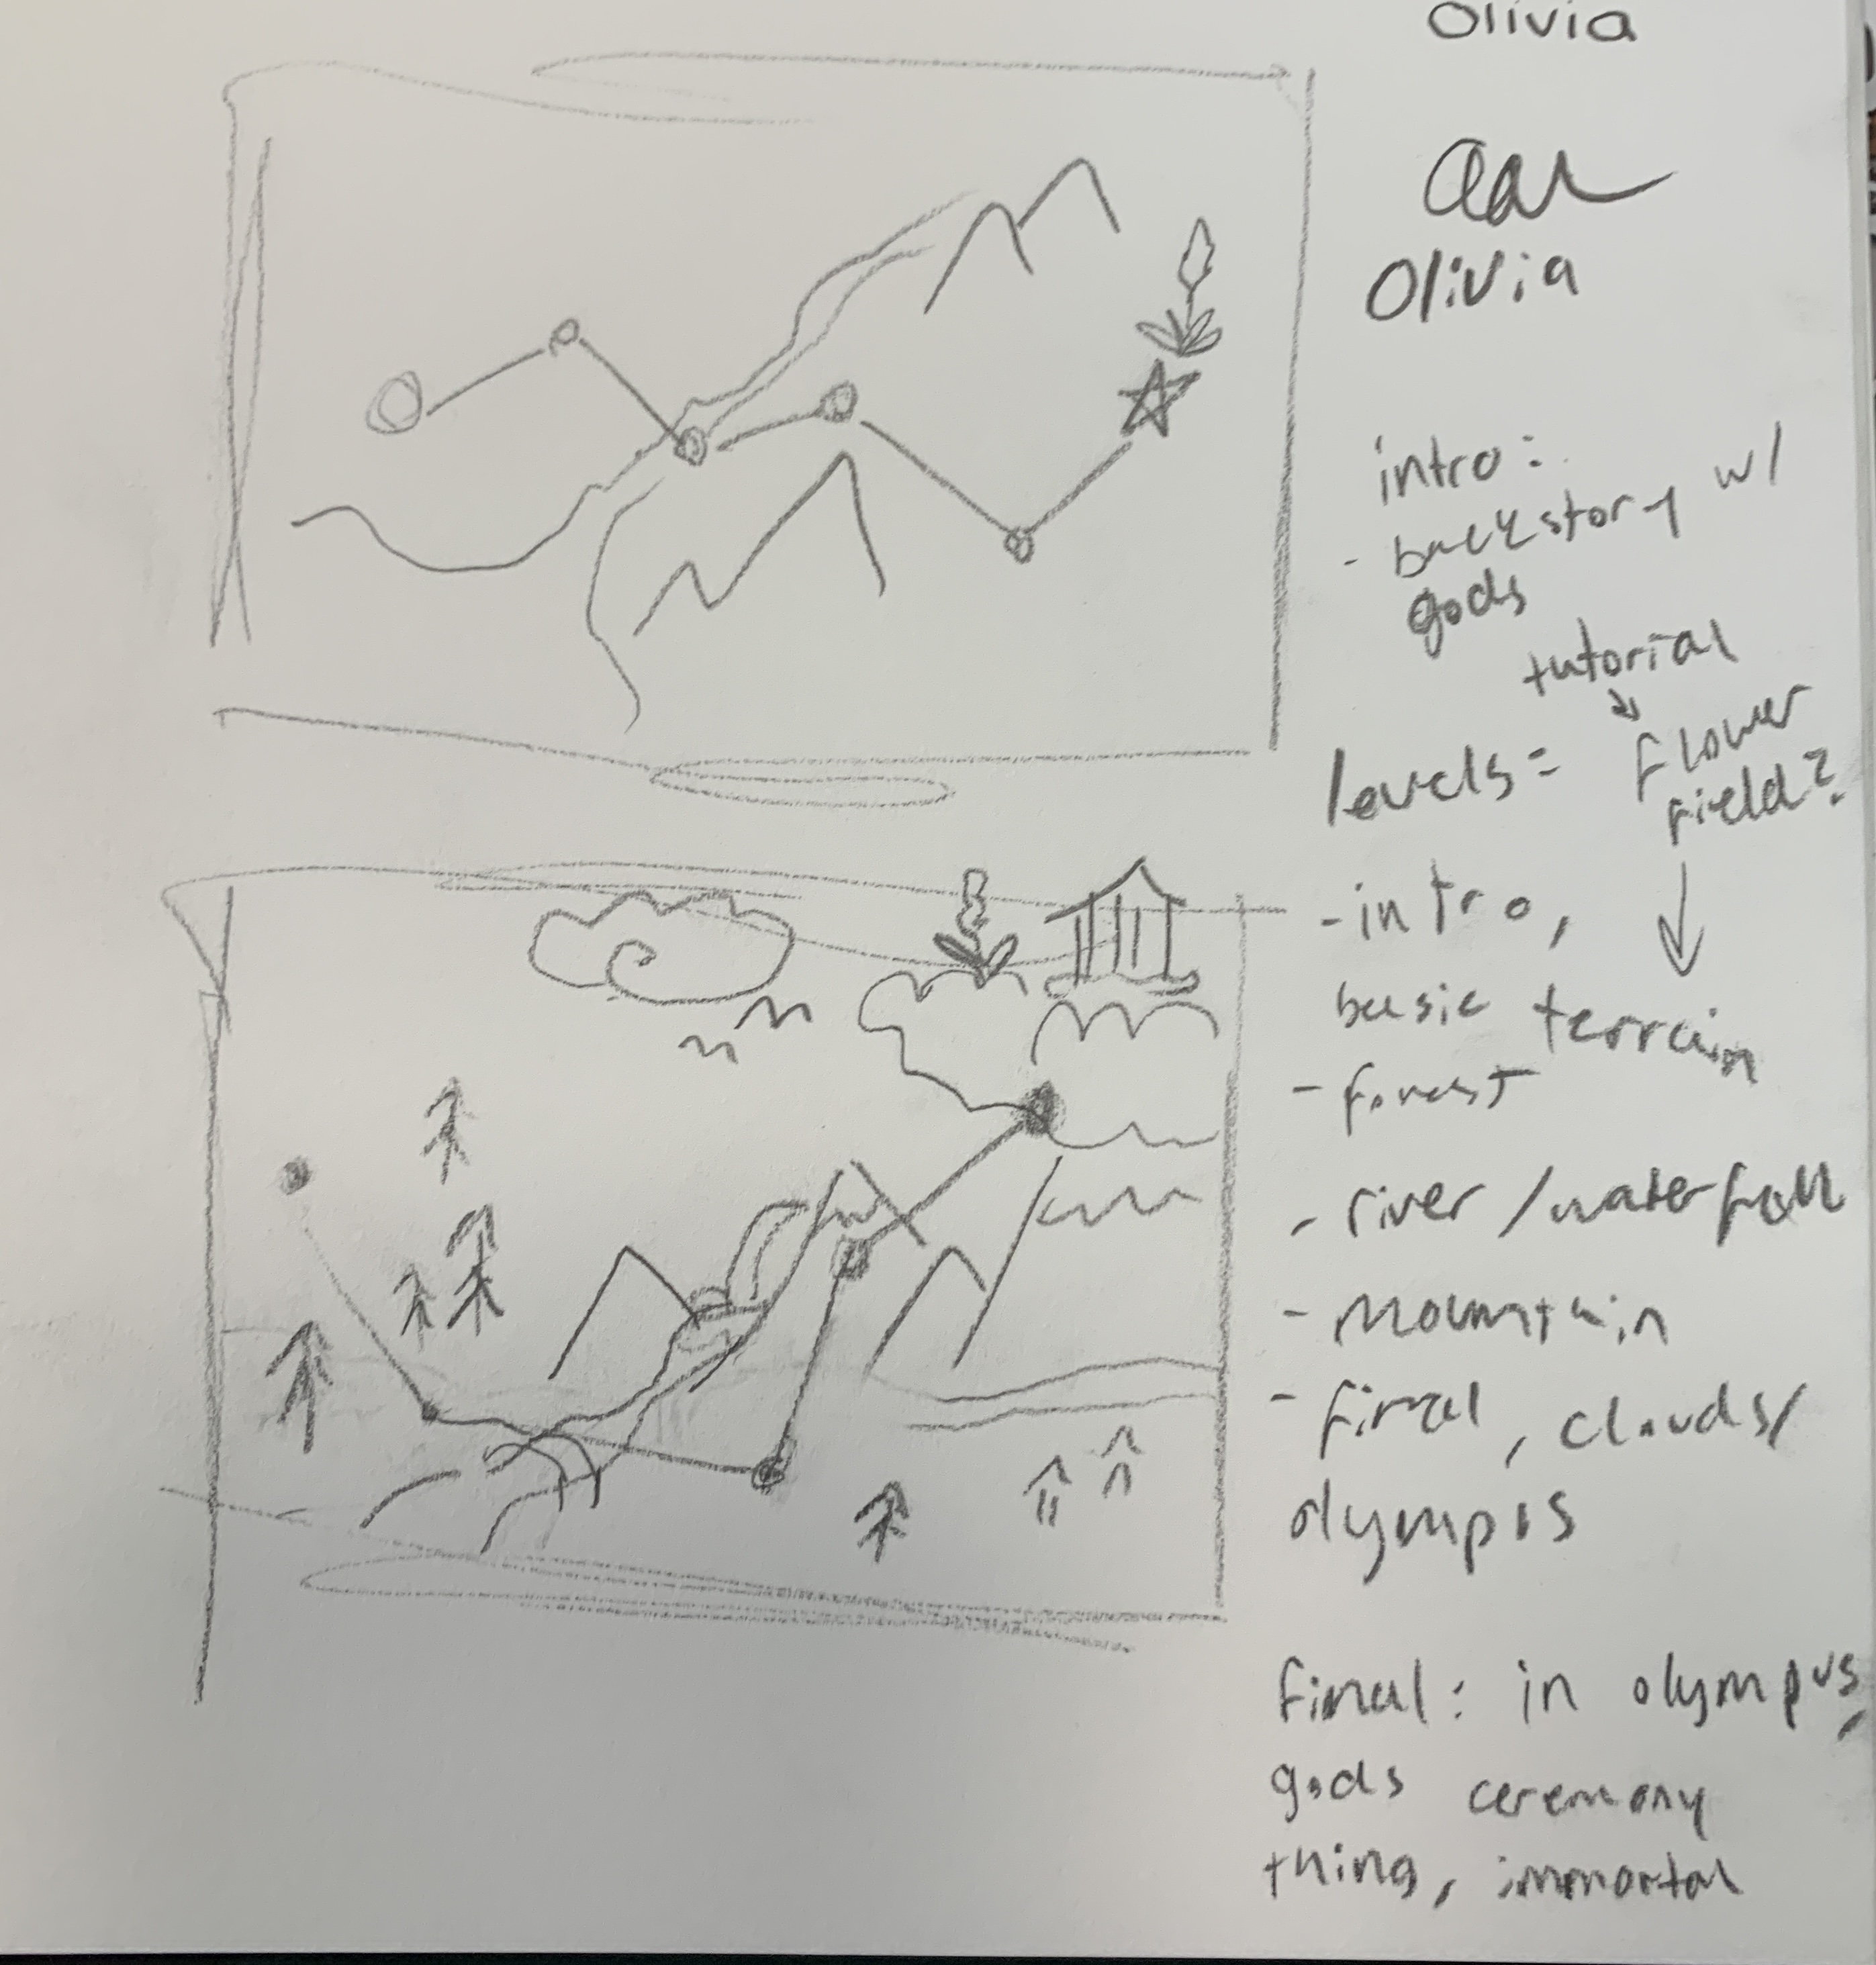 Olivia
Olivia
intro:
- backstory w/
gods
tutorial
levels= flower
field?
- intro,
basic terrain
- forest
- river/waterfall
- mountain
- final, clouds/
olympus
final: in olympus,
gods ceremony
thing, immortal